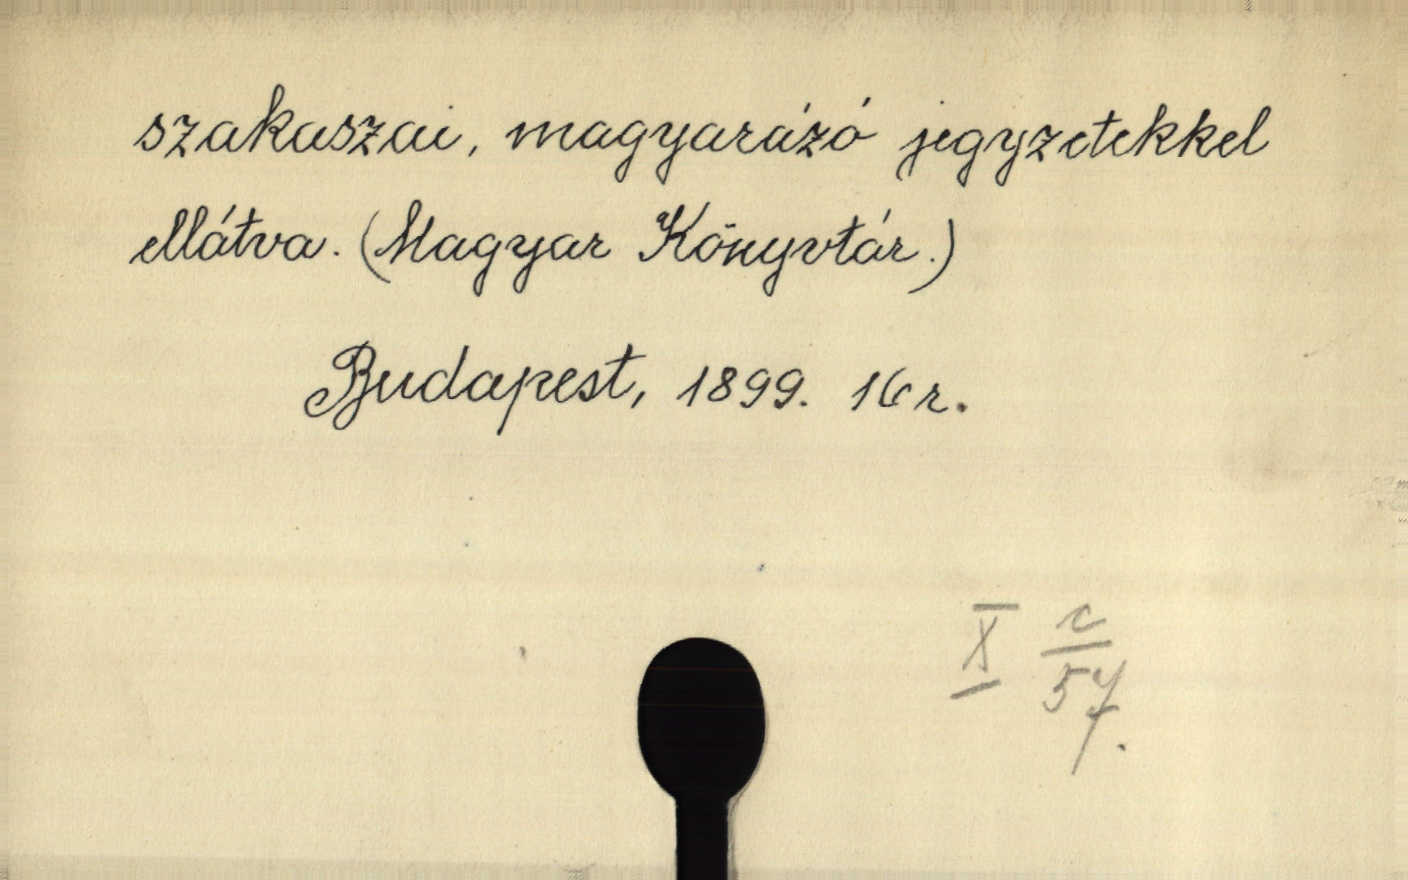 szakaszai, magyarázó jegyzetekkel
ellátva. (Magyar Könyvtár.)
Budapest, 1899. 16 r.
X c
57.